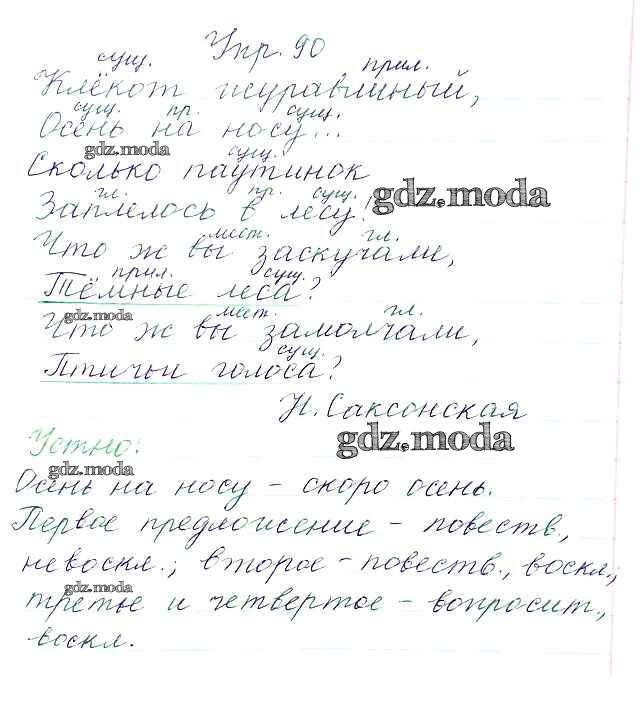 Упр. 90
сущ. прил.
Клёкот журавлиный,
сущ. пр. сущ.
Осень на носу...
gdz.moda
сущ.
Сколько паутинок
гл. пр. сущ.
gdz.moda
Заплелось в лесу!
мест. гл.
Что ж вы заскучали,
прил. сущ.
Тёмные леса?
gdz.moda
мест. гл.
Что ж вы замолчали,
сущ.
Птичьи голоса?
Н. Саксонская
gdz.moda
Устно:
gdz.moda
Осень на носу - скоро осень.
Первое предложение - повеств.,
невоскл.; второе - повеств., воскл.;
gdz.moda
третье и четвертое - вопросит.,
воскл.